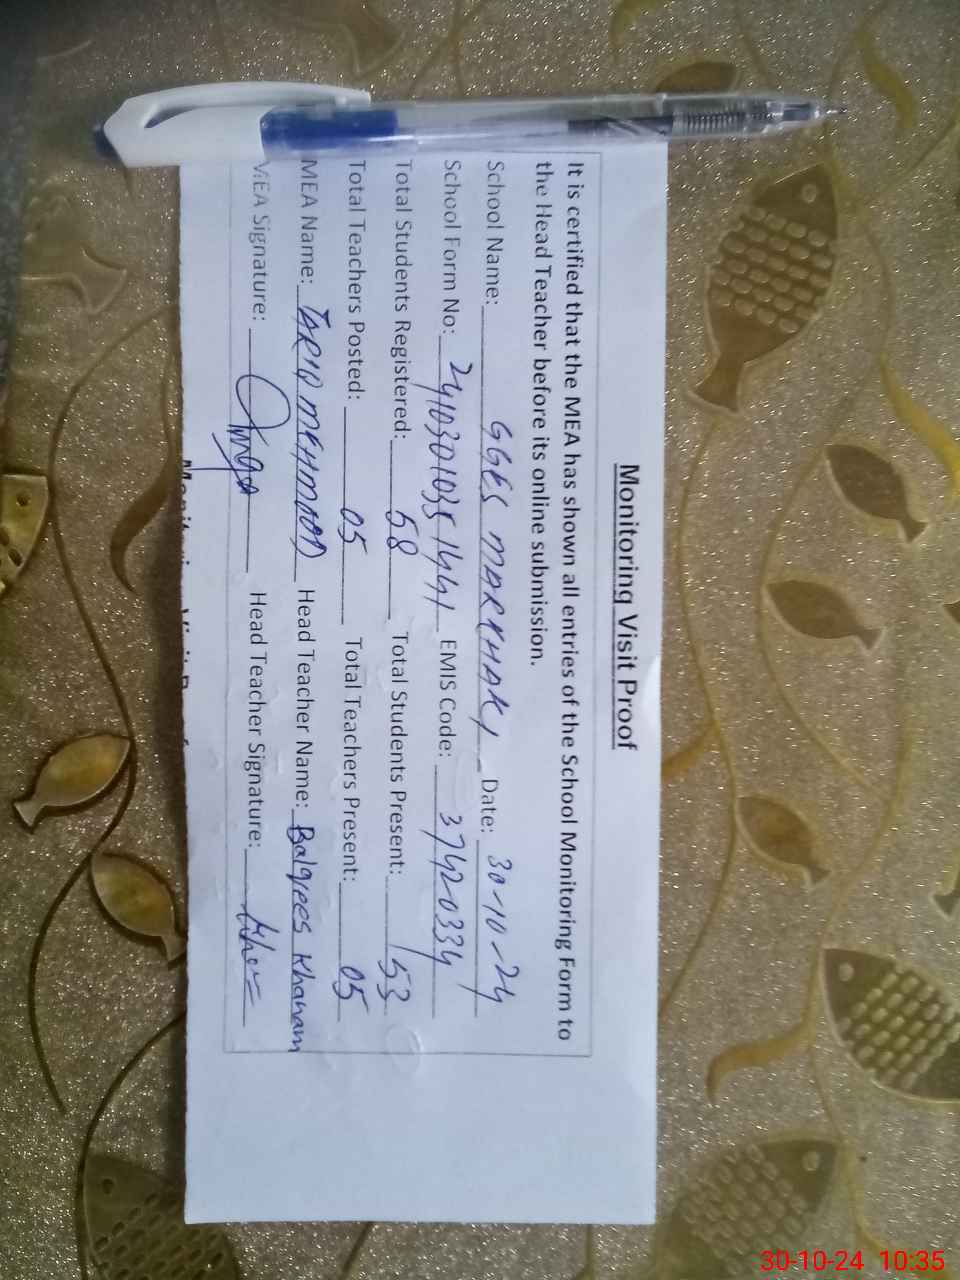 Monitoring Visit Proof
It is certified that the MEA has shown all entries of the School Monitoring Form to
the Head Teacher before its online submission.
School Name: GGES MARKHAKI Date: 30-10-24
School Form No: EMIS Code: 37420334
Total Students Registered: 58 Total Students Present: 53
Total Teachers Posted: 05 Total Teachers Present: 05
MEA Name: TARIQ MEHMOOD Head Teacher Name: Balqees Khanam
MEA Signature: Head Teacher Signature:
30-10-24 10:35